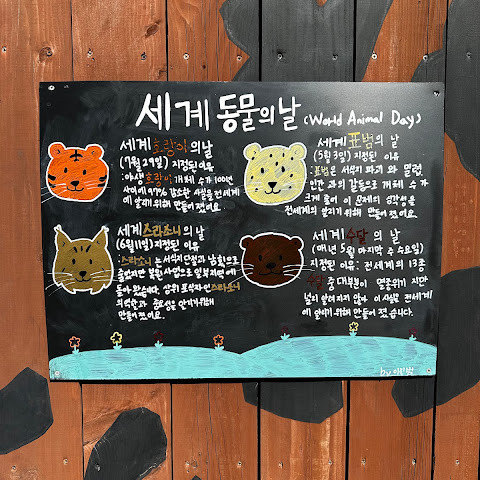 세계 동물의날 (World Animal Day)
세계 호랑이의날
(7월 29일) 지정된 이유
:야생 호랑이 개체 수가 100년
사이에 97% 감소한 사실을 전세계
에 알리기 위해 만들어 졌어요.
세계 표범의 날
(5월 3일) 지정된 이유
:표범은 서식지 파괴 와 밀렵,
인간 과의 갈등으로 개체 수 가
크게 줄어 이 문제의 심각성을
전세계의 알리기 위해 만들어 졌어요.
세계 스라소니의 날
(6월 11일) 지정된 이유
:스라소니 는 서식지 단절과 남획으로
줄었지만 복원 사업으로 일부지역에
돌아 왔습니다. 상위 포식자인 스라소니
의 역할과 중요성을 알리기 위해
만들어 졌어요.
세계 수달 의 날
(매년 5월 마지막 주 수요일)
지정된 이유 : 전세계의 13종
수달 중 대부분이 멸종위기 지만
널리 알려지지 않아 이 사실을 전세계
에 알리기 위해 만들어 졌습니다.
by